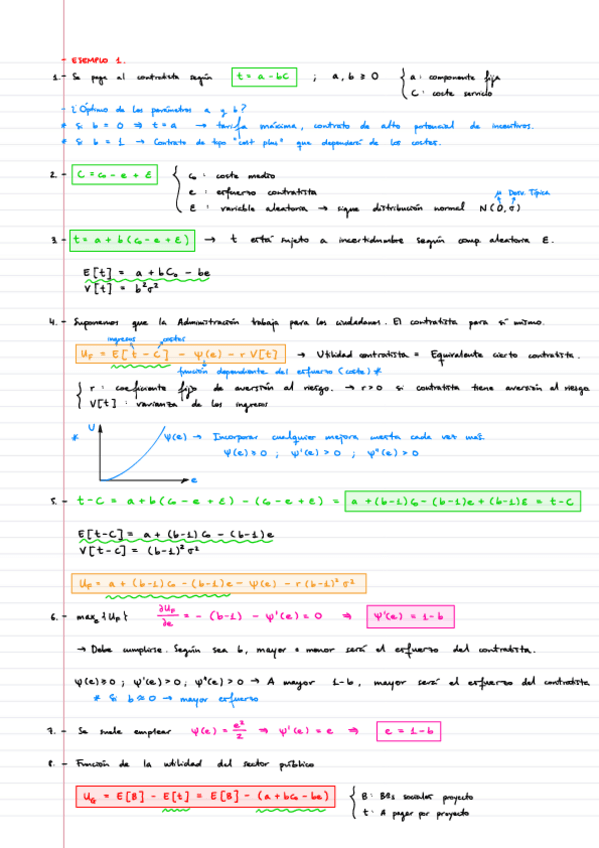 - EJEMPLO 1.
1.- Se paga al contratista según t = a - bC ; a, b ≥ 0 { a : componente fija
C : coste servicio
- ¿Óptimo de los parámetros a y b?
* Si b = 0 ⇒ t = a → tarifa máxima, contrato de alto potencial de incentivos.
* Si b = 1 → Contrato de tipo "cost plus" que dependerá de los costes.
2.- C = C₀ - e + Ɛ { C₀ : coste medio
e : esfuerzo contratista
Ɛ : variable aleatoria → sigue distribución normal N(0,σ)
μ Desv. Típica
3.- t = a + b(C₀ - e + Ɛ) → t está sujeto a incertidumbre según comp. aleatoria Ɛ.
E[t] = a + bC₀ - be
V[t] = b²σ²
4.- Suponemos que la Administración trabaja para los ciudadanos. El contratista para sí mismo.
ingresos costes
U_F = E[t - C] - ψ(e) - r V[t] → Utilidad contratista = Equivalente cierto contratista.
función dependiente del esfuerzo (coste) *
{ r : coeficiente fijo de aversión al riesgo. → r>0 si contratista tiene aversión al riesgo
V[t] : varianza de los ingresos
* U ψ(e) → Incorporar cualquier mejora cuesta cada vez más.
ψ(e) ≥ 0 ; ψ'(e) > 0 ; ψ''(e) > 0
e
5.- t - C = a + b(C₀ - e + Ɛ) - (C₀ - e + Ɛ) = a + (b-1)C₀ - (b-1)e + (b-1)Ɛ = t - C
E[t-C] = a + (b-1)C₀ - (b-1)e
V[t-C] = (b-1)²σ²
U_F = a + (b-1)C₀ - (b-1)e - ψ(e) - r(b-1)²σ²
6.- maxₑ{U_F} ∂U_F/∂e = - (b-1) - ψ'(e) = 0 ⇒ ψ'(e) = 1-b
→ Debe cumplirse. Según sea b, mayor o menor será el esfuerzo del contratista.
ψ(e) ≥ 0 ; ψ'(e) > 0 ; ψ''(e) > 0 → A mayor 1-b, mayor será el esfuerzo del contratista
* Si b ≈ 0 → mayor esfuerzo
7.- Se suele emplear ψ(e) = e²/2 ⇒ ψ'(e) = e ⇒ e = 1-b
8.- Función de la utilidad del sector público
U_G = E[B] - E[t] = E[B] - (a + bC₀ - be) { B : BBs sociales proyecto
t : A pagar por proyecto